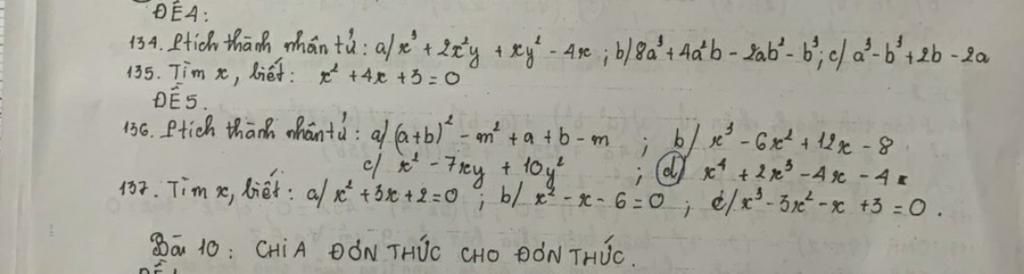 ĐỀ 4:
134. Ptích thành nhân tử: a/ x³ + 2x²y + xy² - 4x ; b/ 8a³ + 4a²b - 2ab² - b³ ; c/ a³ - b³ + 2b - 2a
135. Tìm x, biết: x² + 4x + 3 = 0
ĐỀ 5.
136. Ptích thành nhân tử: a/ (a+b)² - m² + a + b - m ; b/ x³ - 6x² + 12x - 8
c/ x² - 7xy + 10y² ; d/ x⁴ + 2x³ - 4x - 4
137. Tìm x, biết: a/ x² + 3x + 2 = 0 ; b/ x² - x - 6 = 0 ; c/ x³ - 3x² - x + 3 = 0 .
Bài 10 : CHIA ĐƠN THỨC CHO ĐƠN THỨC.